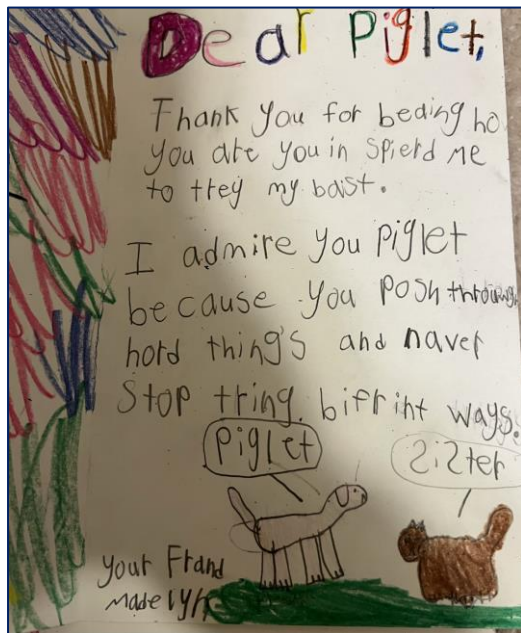 Dear Piglet,
Thank you for beding ho
you are you in spierd me
to trey my baist.
I admire you piglet
because you posh through
hord thing's and naver
Stop tring. bifrint ways.
piglet
Sister
your Frand
madelyn